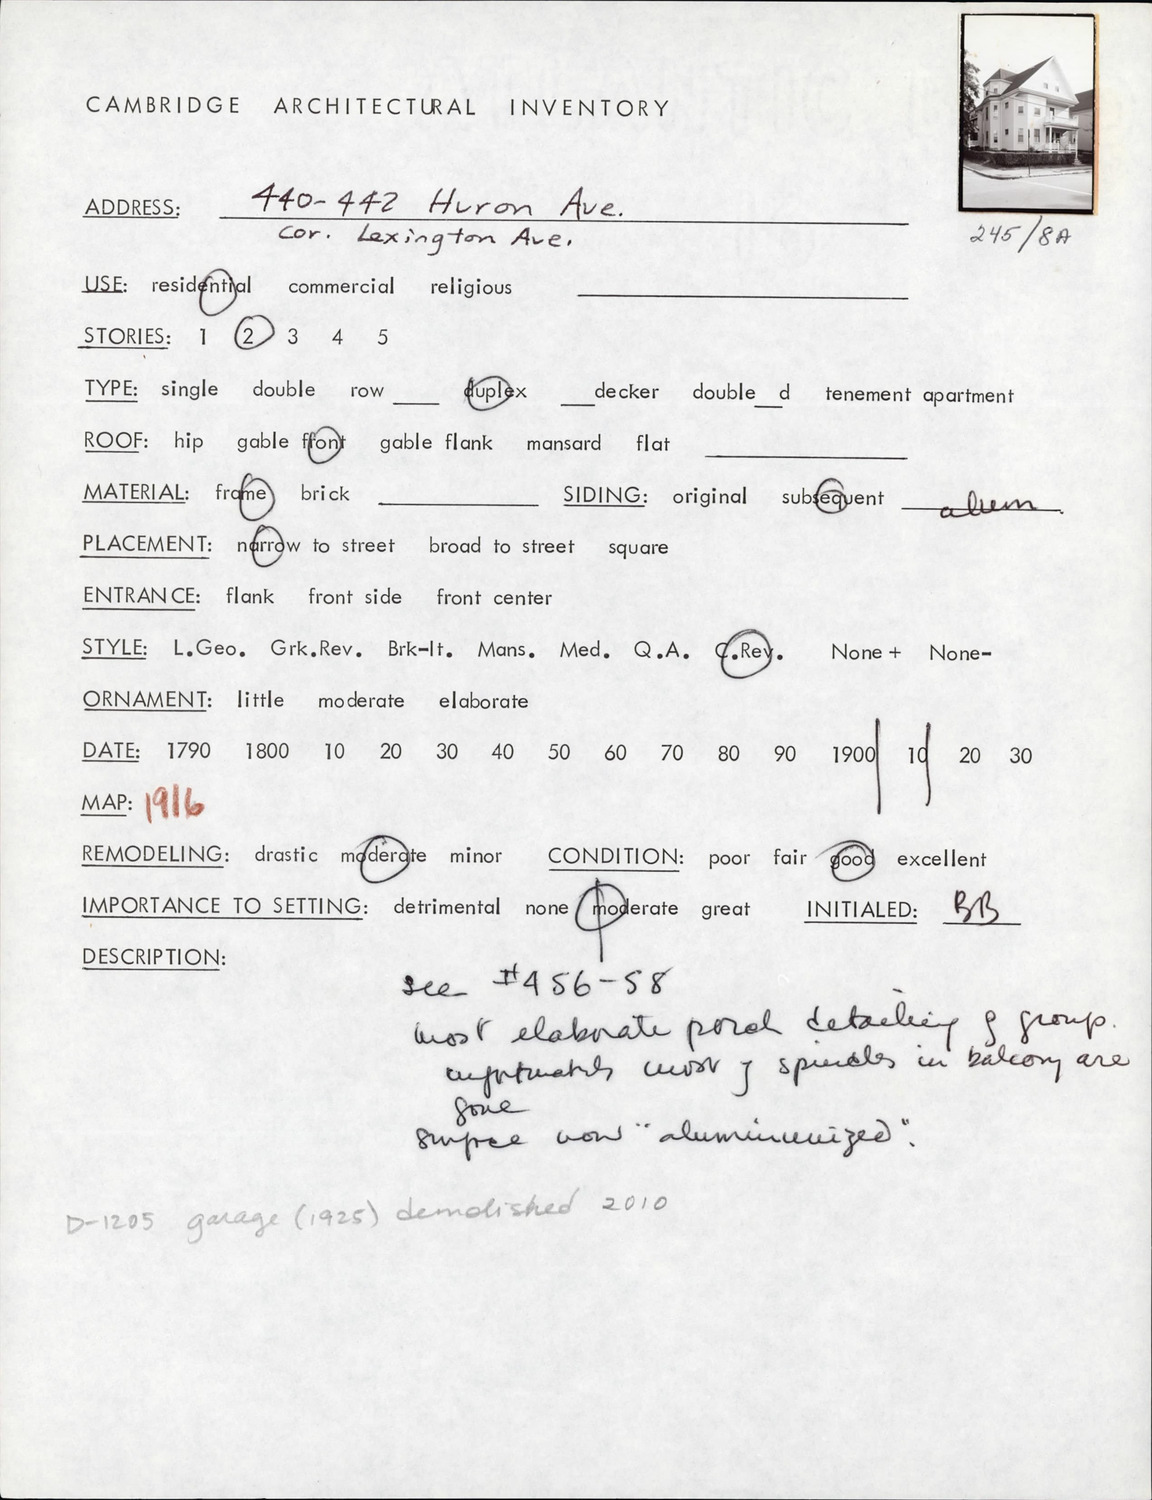 CAMBRIDGE ARCHITECTURAL INVENTORY
ADDRESS: 440-442 Huron Ave.
cor. Lexington Ave.
245/8A
USE: residential commercial religious
STORIES: 1 2 3 4 5
TYPE: single double row ___ duplex ___decker double__d tenement apartment
ROOF: hip gable front gable flank mansard flat
MATERIAL: frame brick SIDING: original subsequent alum.
PLACEMENT: narrow to street broad to street square
ENTRANCE: flank front side front center
STYLE: L.Geo. Grk.Rev. Brk-It. Mans. Med. Q.A. C.Rev. None+ None-
ORNAMENT: little moderate elaborate
DATE: 1790 1800 10 20 30 40 50 60 70 80 90 1900 10 20 30
MAP: 1916
REMODELING: drastic moderate minor CONDITION: poor fair good excellent
IMPORTANCE TO SETTING: detrimental none moderate great INITIALED: BB
DESCRIPTION:
see #456-58
most elaborate porch detailing of group.
unfortunately most of spindles in balcony are
gone
surface now "aluminumized".
D-1205 garage (1925) demolished 2010